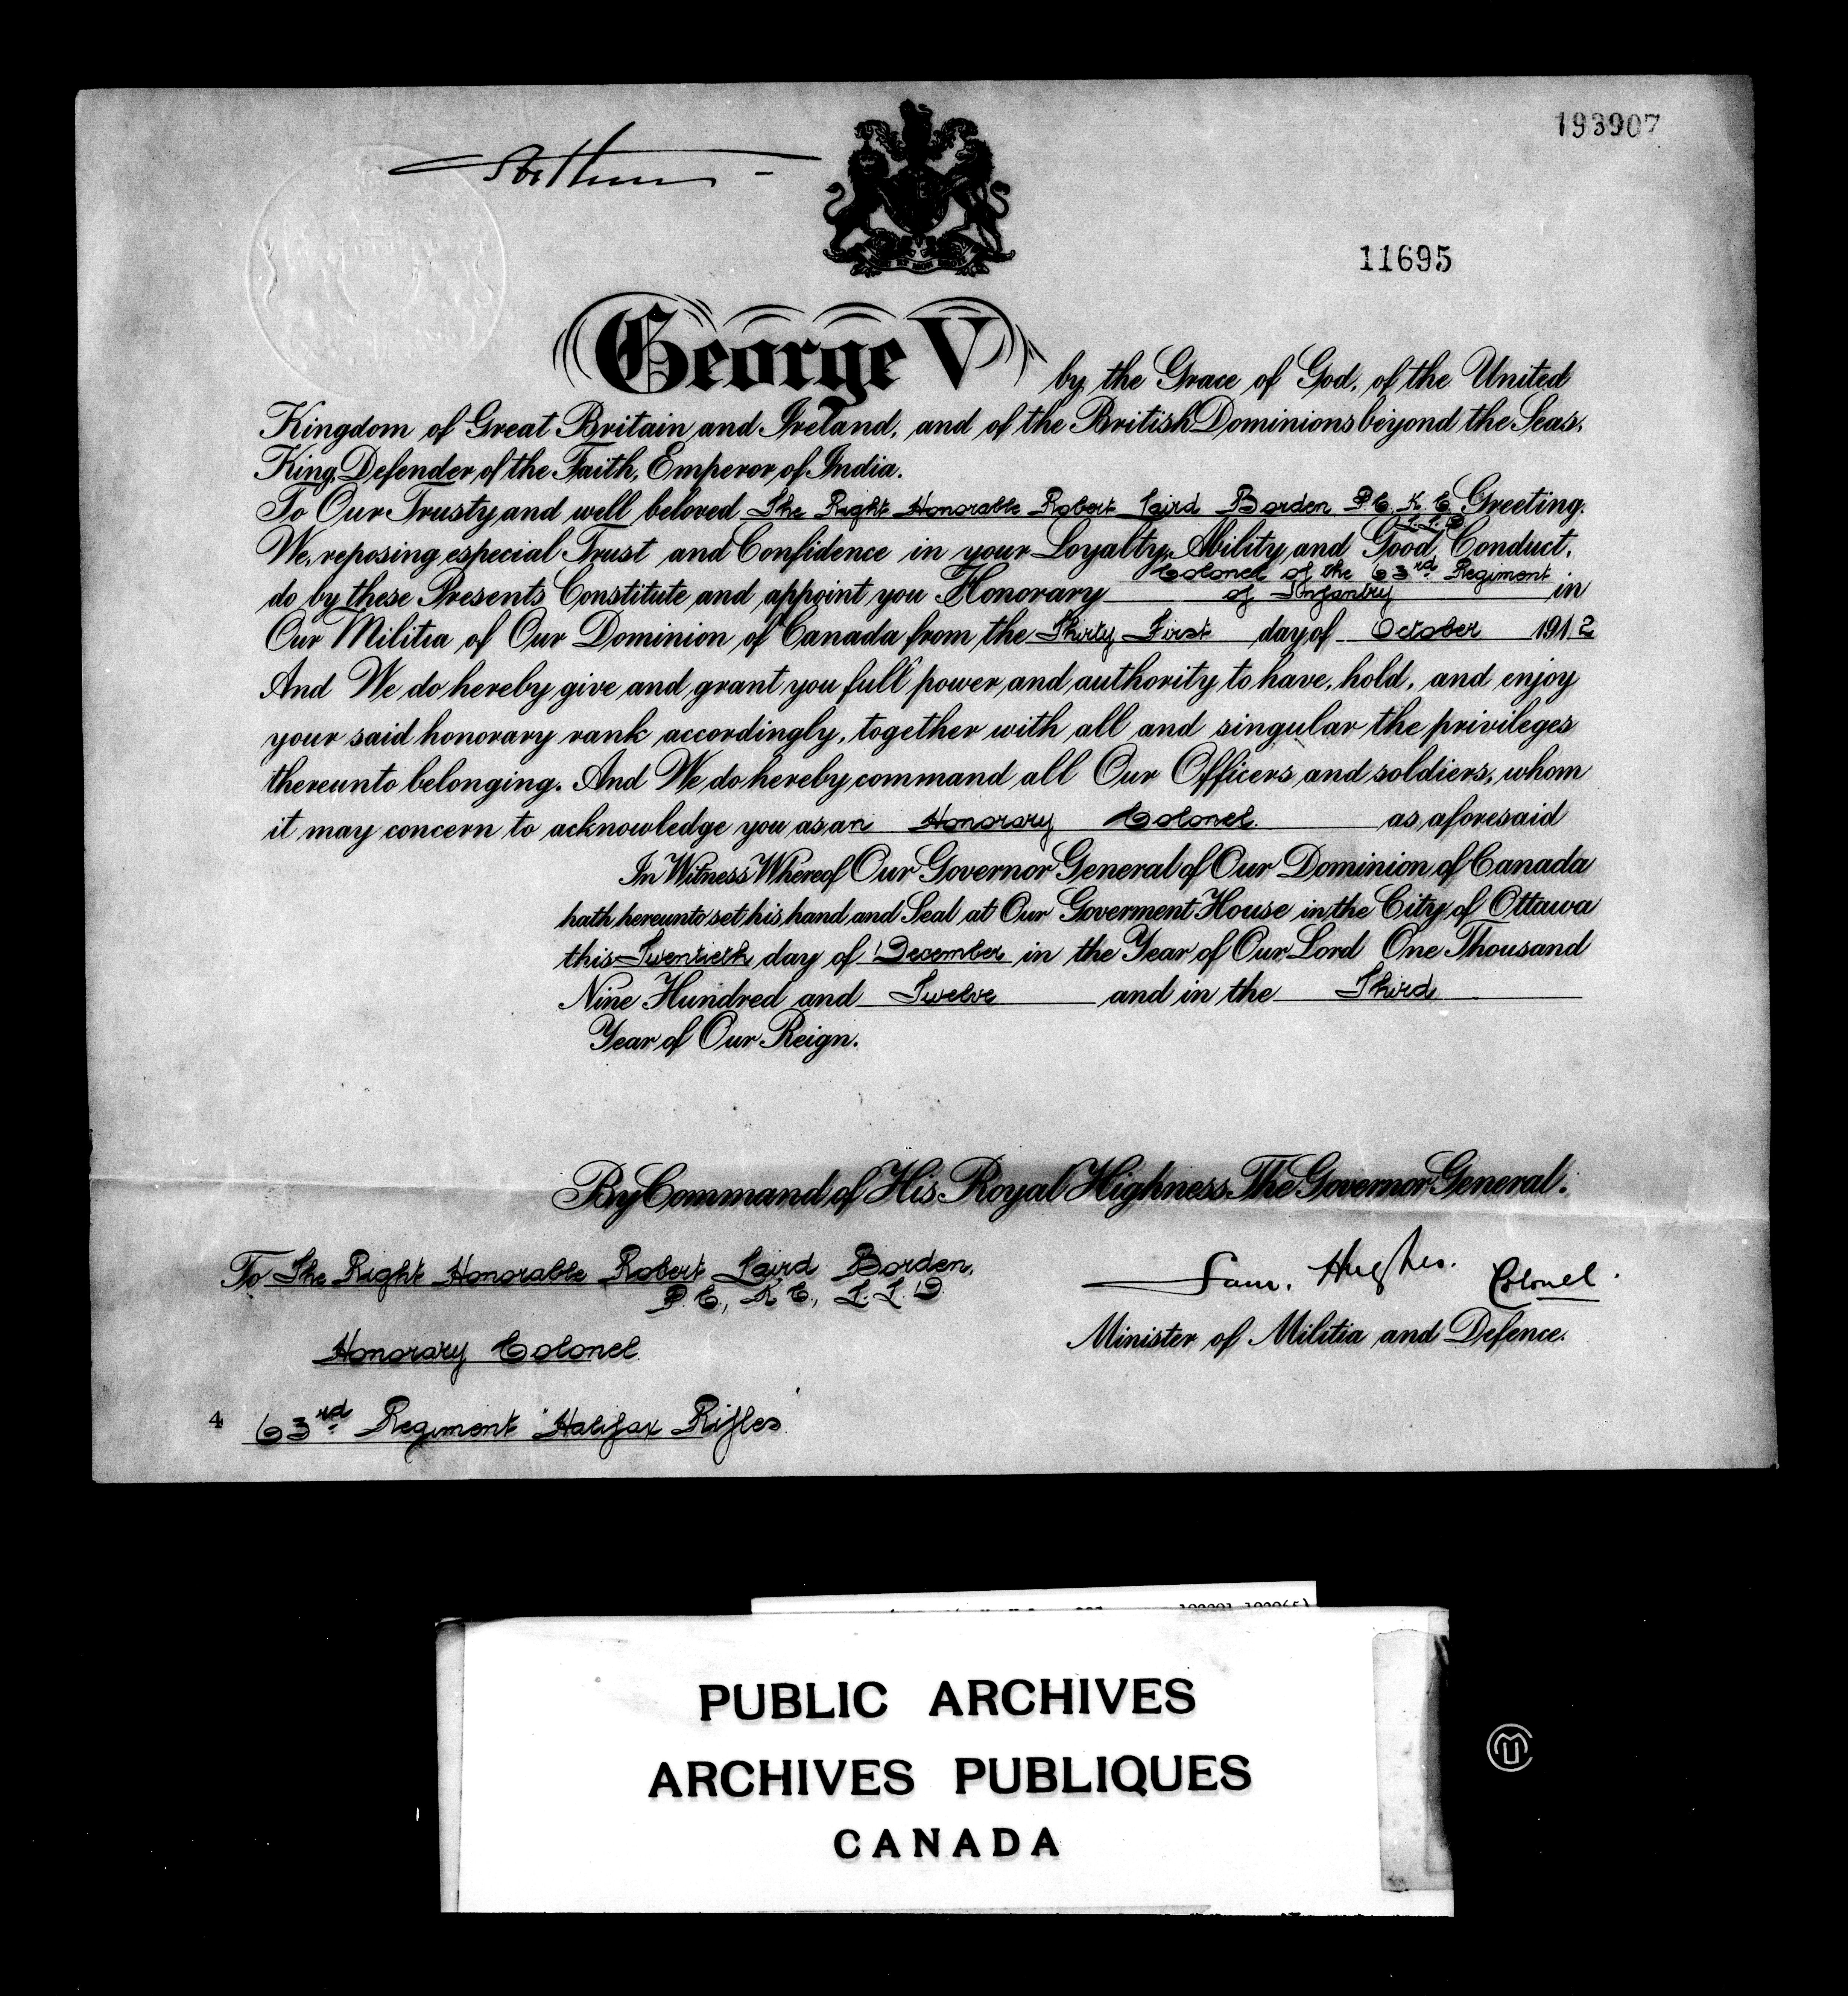 193907
Arthur
11695
George V by the Grace of God, of the United
Kingdom of Great Britain and Ireland, and of the British Dominions beyond the Seas,
King, Defender of the Faith, Emperor of India.
To Our Trusty and well beloved The Right Honorable Robert Laird Borden P.C. K.C. Greeting.
L.L.D
We, reposing especial Trust and Confidence in your Loyalty, Ability, and Good Conduct,
Colonel of the 63rd Regiment
do by these Presents Constitute and appoint you Honorary of Infantry in
Our Militia of Our Dominion of Canada from the Thirty First day of October 1912
And We do hereby give and grant you full power and authority to have, hold, and enjoy
your said honorary rank accordingly, together with all and singular the privileges
thereunto belonging. And We do hereby command all Our Officers and soldiers, whom
it may concern to acknowledge you as an Honorary Colonel. as aforesaid
In Witness Whereof Our Governor General of Our Dominion of Canada
hath hereunto set his hand and Seal at Our Goverment House in the City of Ottawa
this Twentieth day of December in the Year of Our Lord One Thousand
Nine Hundred and Twelve and in the Third
Year of Our Reign.
By Command of His Royal Highness The Governor General.
To The Right Honorable Robert Laird Borden,
P.C., K.C., L.L.D.
Sam. Hughes. Colonel.
Minister of Militia and Defence.
Honorary Colonel
4 63rd Regiment "Halifax Rifles"
PUBLIC ARCHIVES
ARCHIVES PUBLIQUES
CANADA